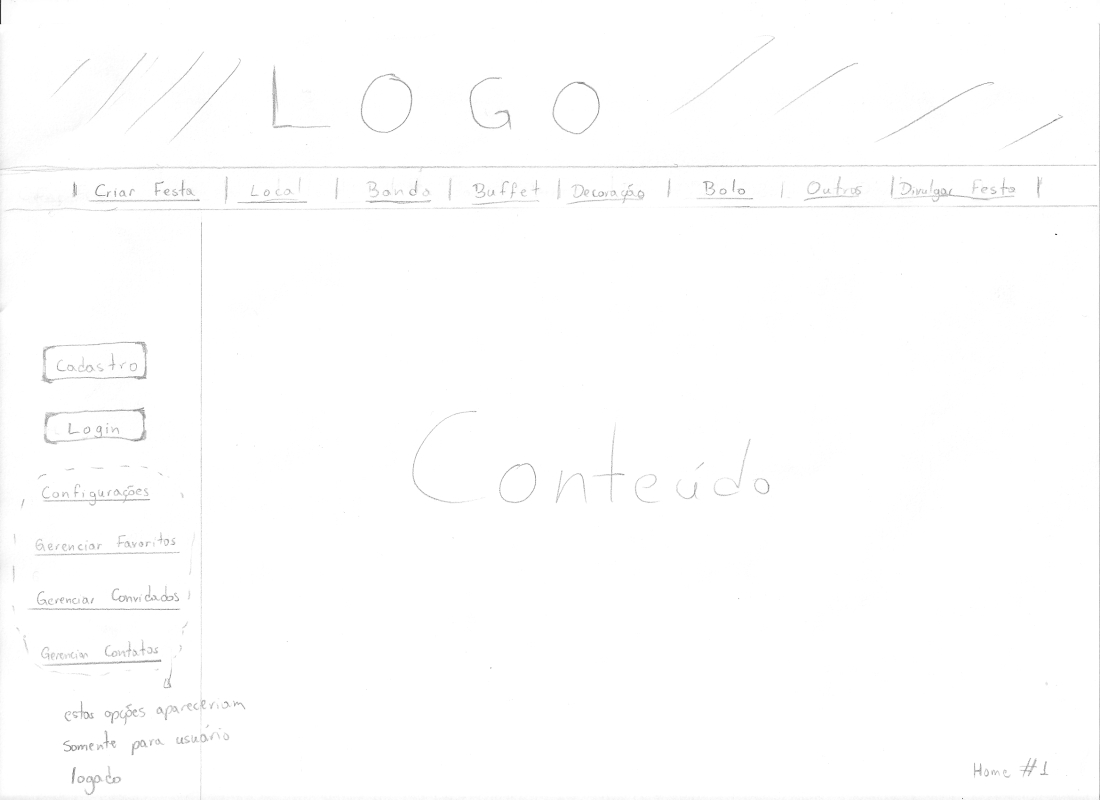 LOGO
Criar Festa | Local | Banda | Buffet | Decoração | Bolo | Outros | Divulgar Festa
Cadastro
Login
Configurações
Gerenciar Favoritos
Gerenciar Convidados
Gerenciar Contatos
estas opções apareceriam
somente para usuário
logado
Conteúdo
Home #1